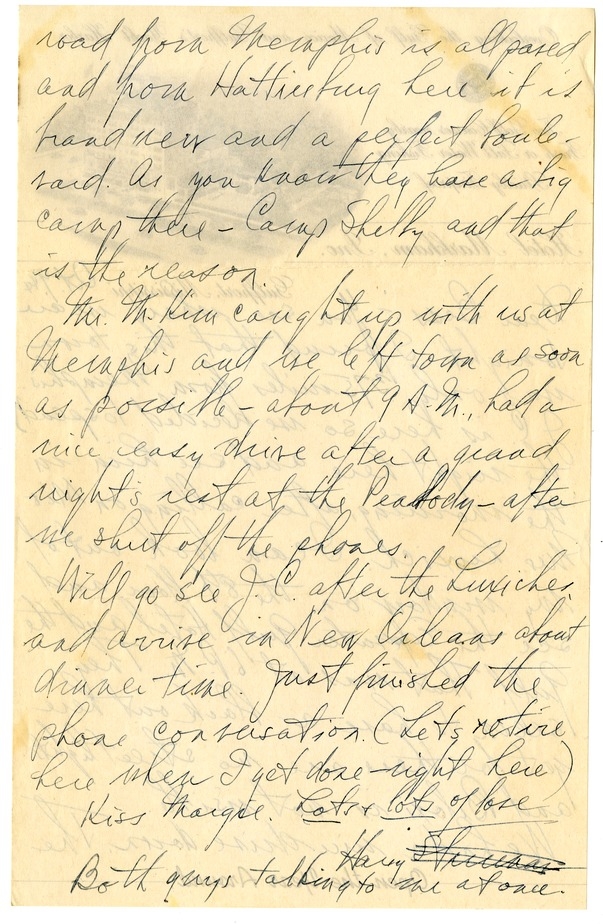 road from Memphis is all paved
and from Hattiesburg here it is
brand new and a perfect boule-
vard. As you know they have a big
camp there - Camp Shelby and that
is the reason.
Mr. McKim caught up with us at
Memphis and we left town as soon
as possible - about 9 A.M., had a
nice easy drive after a grand
night's rest at the Peabody - after
we shut off the phones.
Will go see J.C. after the
and arrive in New Orleans about
dinner time. Just finished the
phone conversation. (Lets retire
here when I get done - right here)
Kiss Margie. Lots & lots of love
Harry Truman
Both guys talking to me at once.